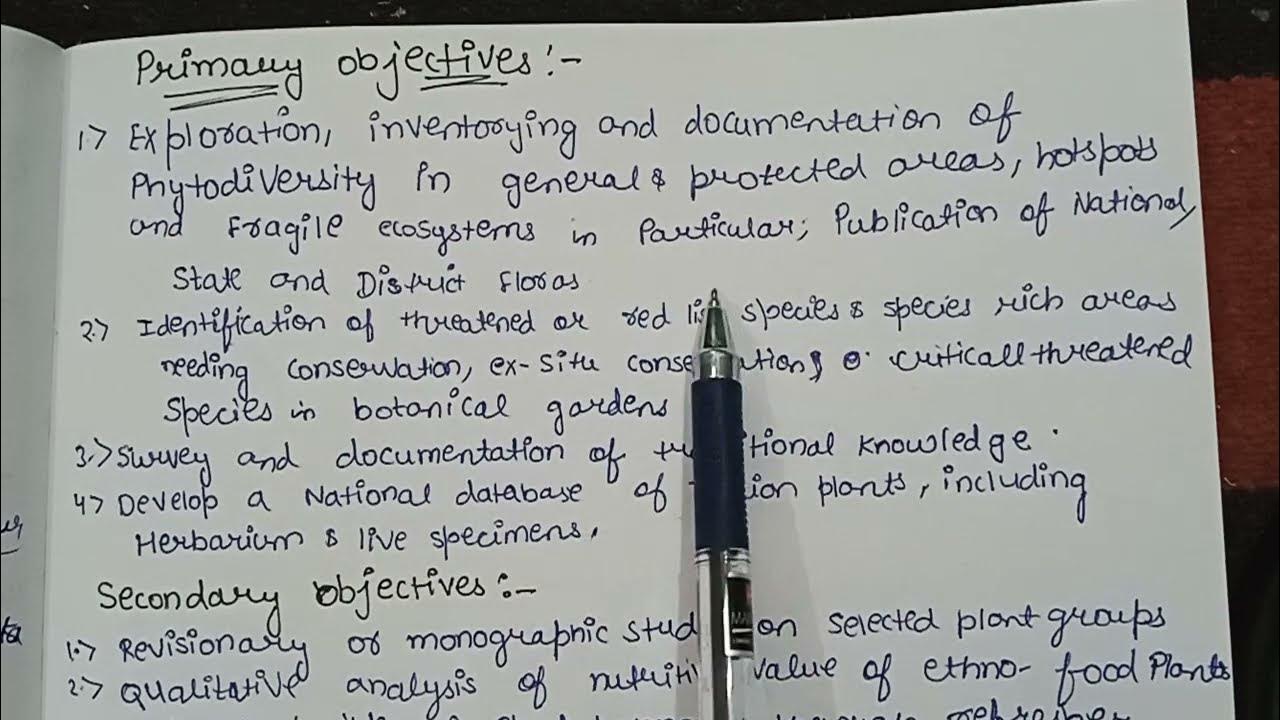 Primary objectives :-
1.) Exploration, inventorying and documentation of
Phytodiversity in general & protected areas, hotspots
and Fragile ecosystems in Particular; Publication of National,
State and District Floras
2.) Identification of threatened or red species & species rich areas
needing conservation, ex-situ criticall threatered
Species in botanical gardens
3.) Survey and documentation of knowledge.
4) Develop a National database of plants, including
Herbarium & live specimens.
Secondary objectives :-
1.) Revisionary or monographic on selected plant groups
2.) Qualitative analysis of value of ethno-food Plants